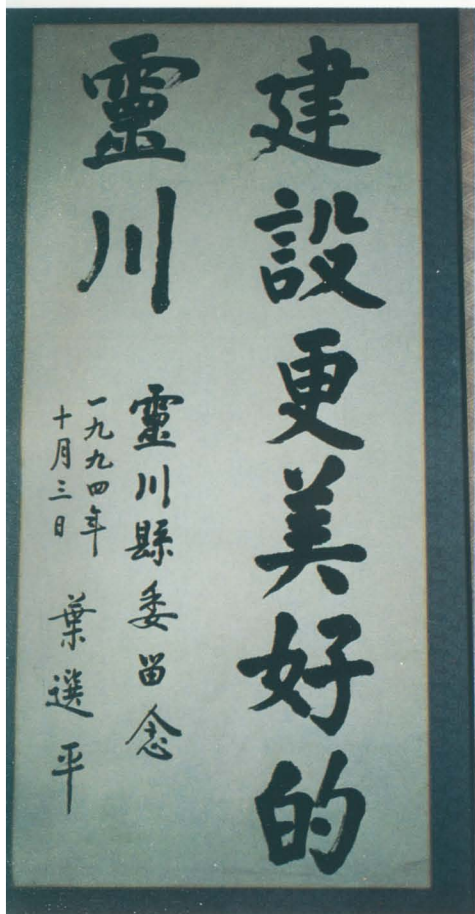 建設更美好的
靈川
靈川縣委留念
一九九四年
十月三日
葉選平